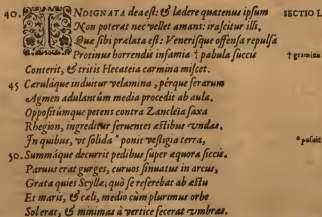 40. INDIGNATA dea est: & lædere quatenus ipsum SECTIO I.
Non poterat nec vellet amans: irascitur illi,
Quæ sibi prælata est: Venerisque offensa repulsa
Protinus horrendis infamia † pabula succis † gramina
Conterit, & tritis Hecateia carmina miscet.
45 Cærulaque induitur velamina, perque ferarum
Agmen adulantûm media procedit ab aula.
Oppositumque petens contra Zancleïa saxa
Rhegion, ingreditur feruentes æstibus vndas.
In quibus, vt solida * ponit vestigia terra, * posuit
50. Summáque decurrit pedibus super æquora siccis.
Paruus erat gurges, curuos sinuatus in arcus,
Grata quies Scyllæ; quò se referebat ab æstu
Et maris, & cæli, medio cùm plurimus orbe
Sol erat, & minimas à vertice fecerat vmbras.